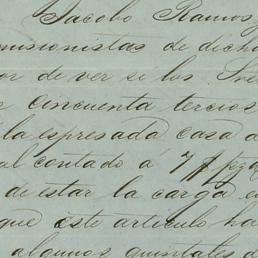 Jacobo Ramos,
misionistas de dicho
or de ver si los
cincuenta tercios
la espresada casa d
al contado á 7
de estar la carga en
que este articulo ha
algunos quintales d